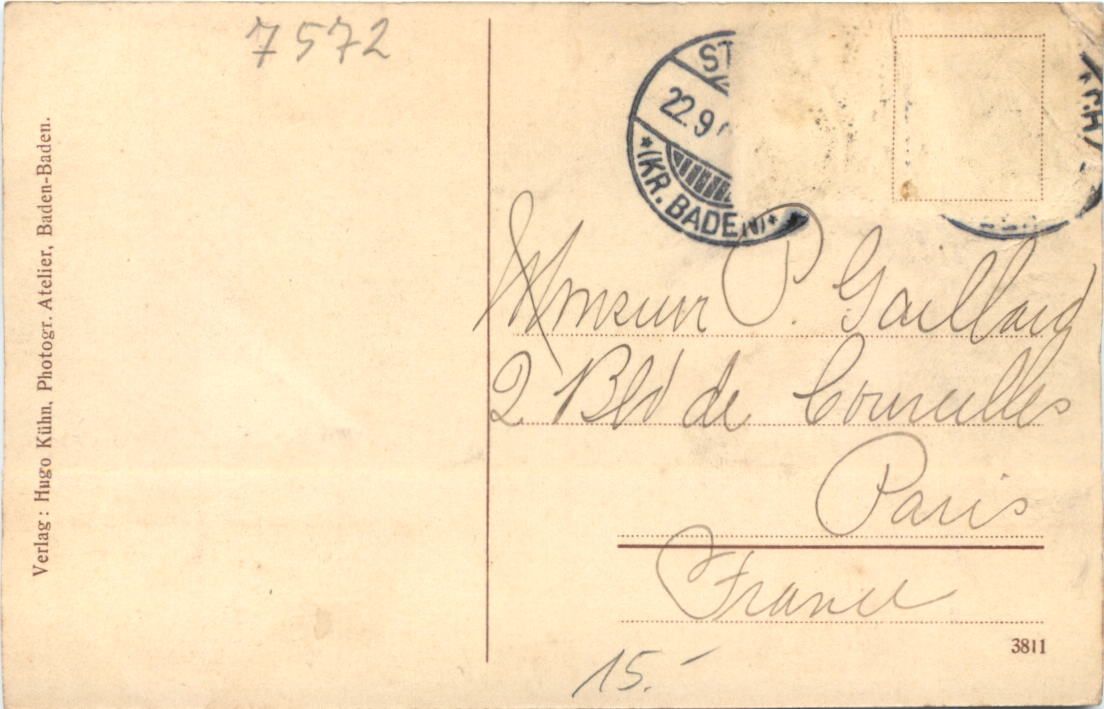 7572
Verlag: Hugo Kühn, Photogr. Atelier, Baden-Baden.
ST
22.9
*(KR. BADEN)*
Monsieur P. Gaillard
2 Bld de Courcelles
Paris
France
3811
15.-